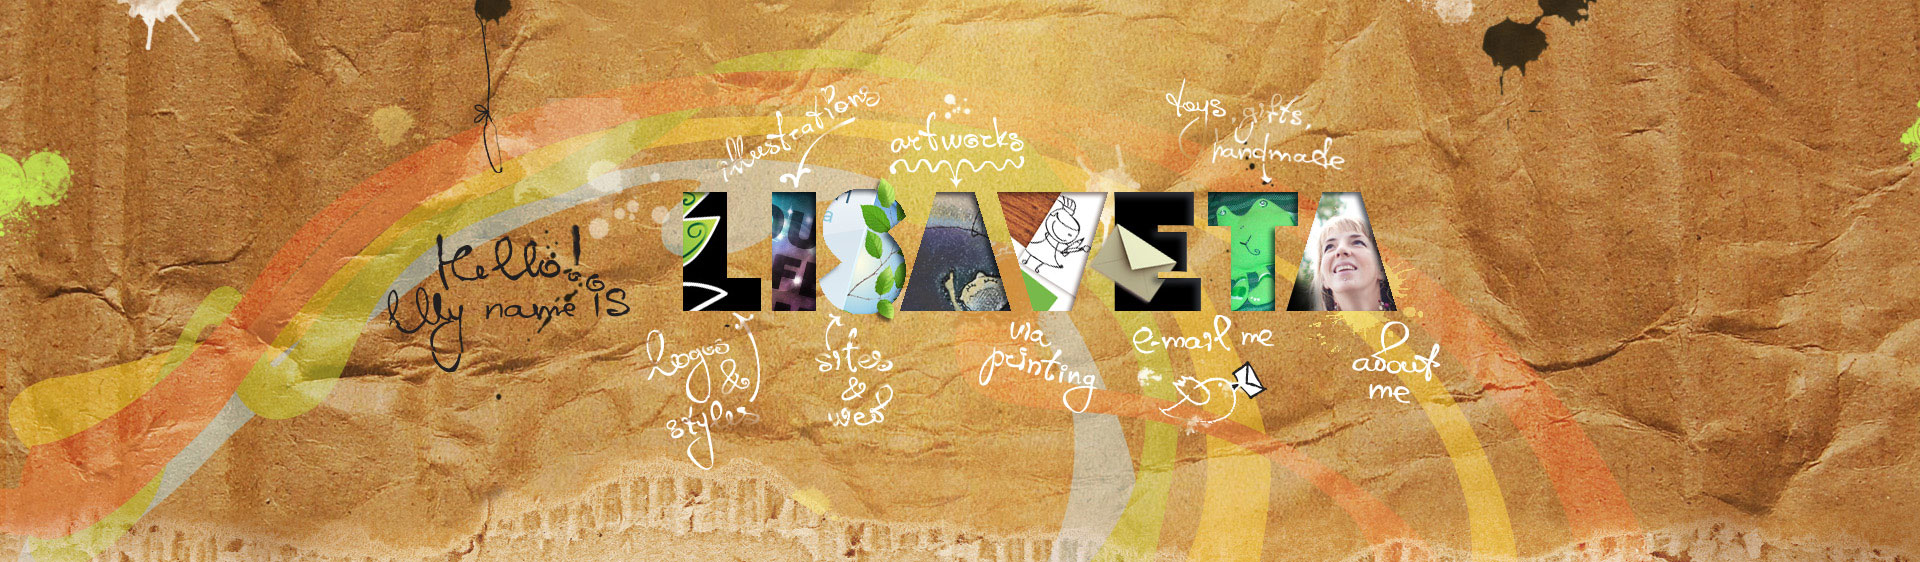 Hello!
My name is
LISAVETA
illustrations
artworks
toys, gifts,
handmade
logos
&
styles
sites
&
web
via
printing
e-mail me
about
me